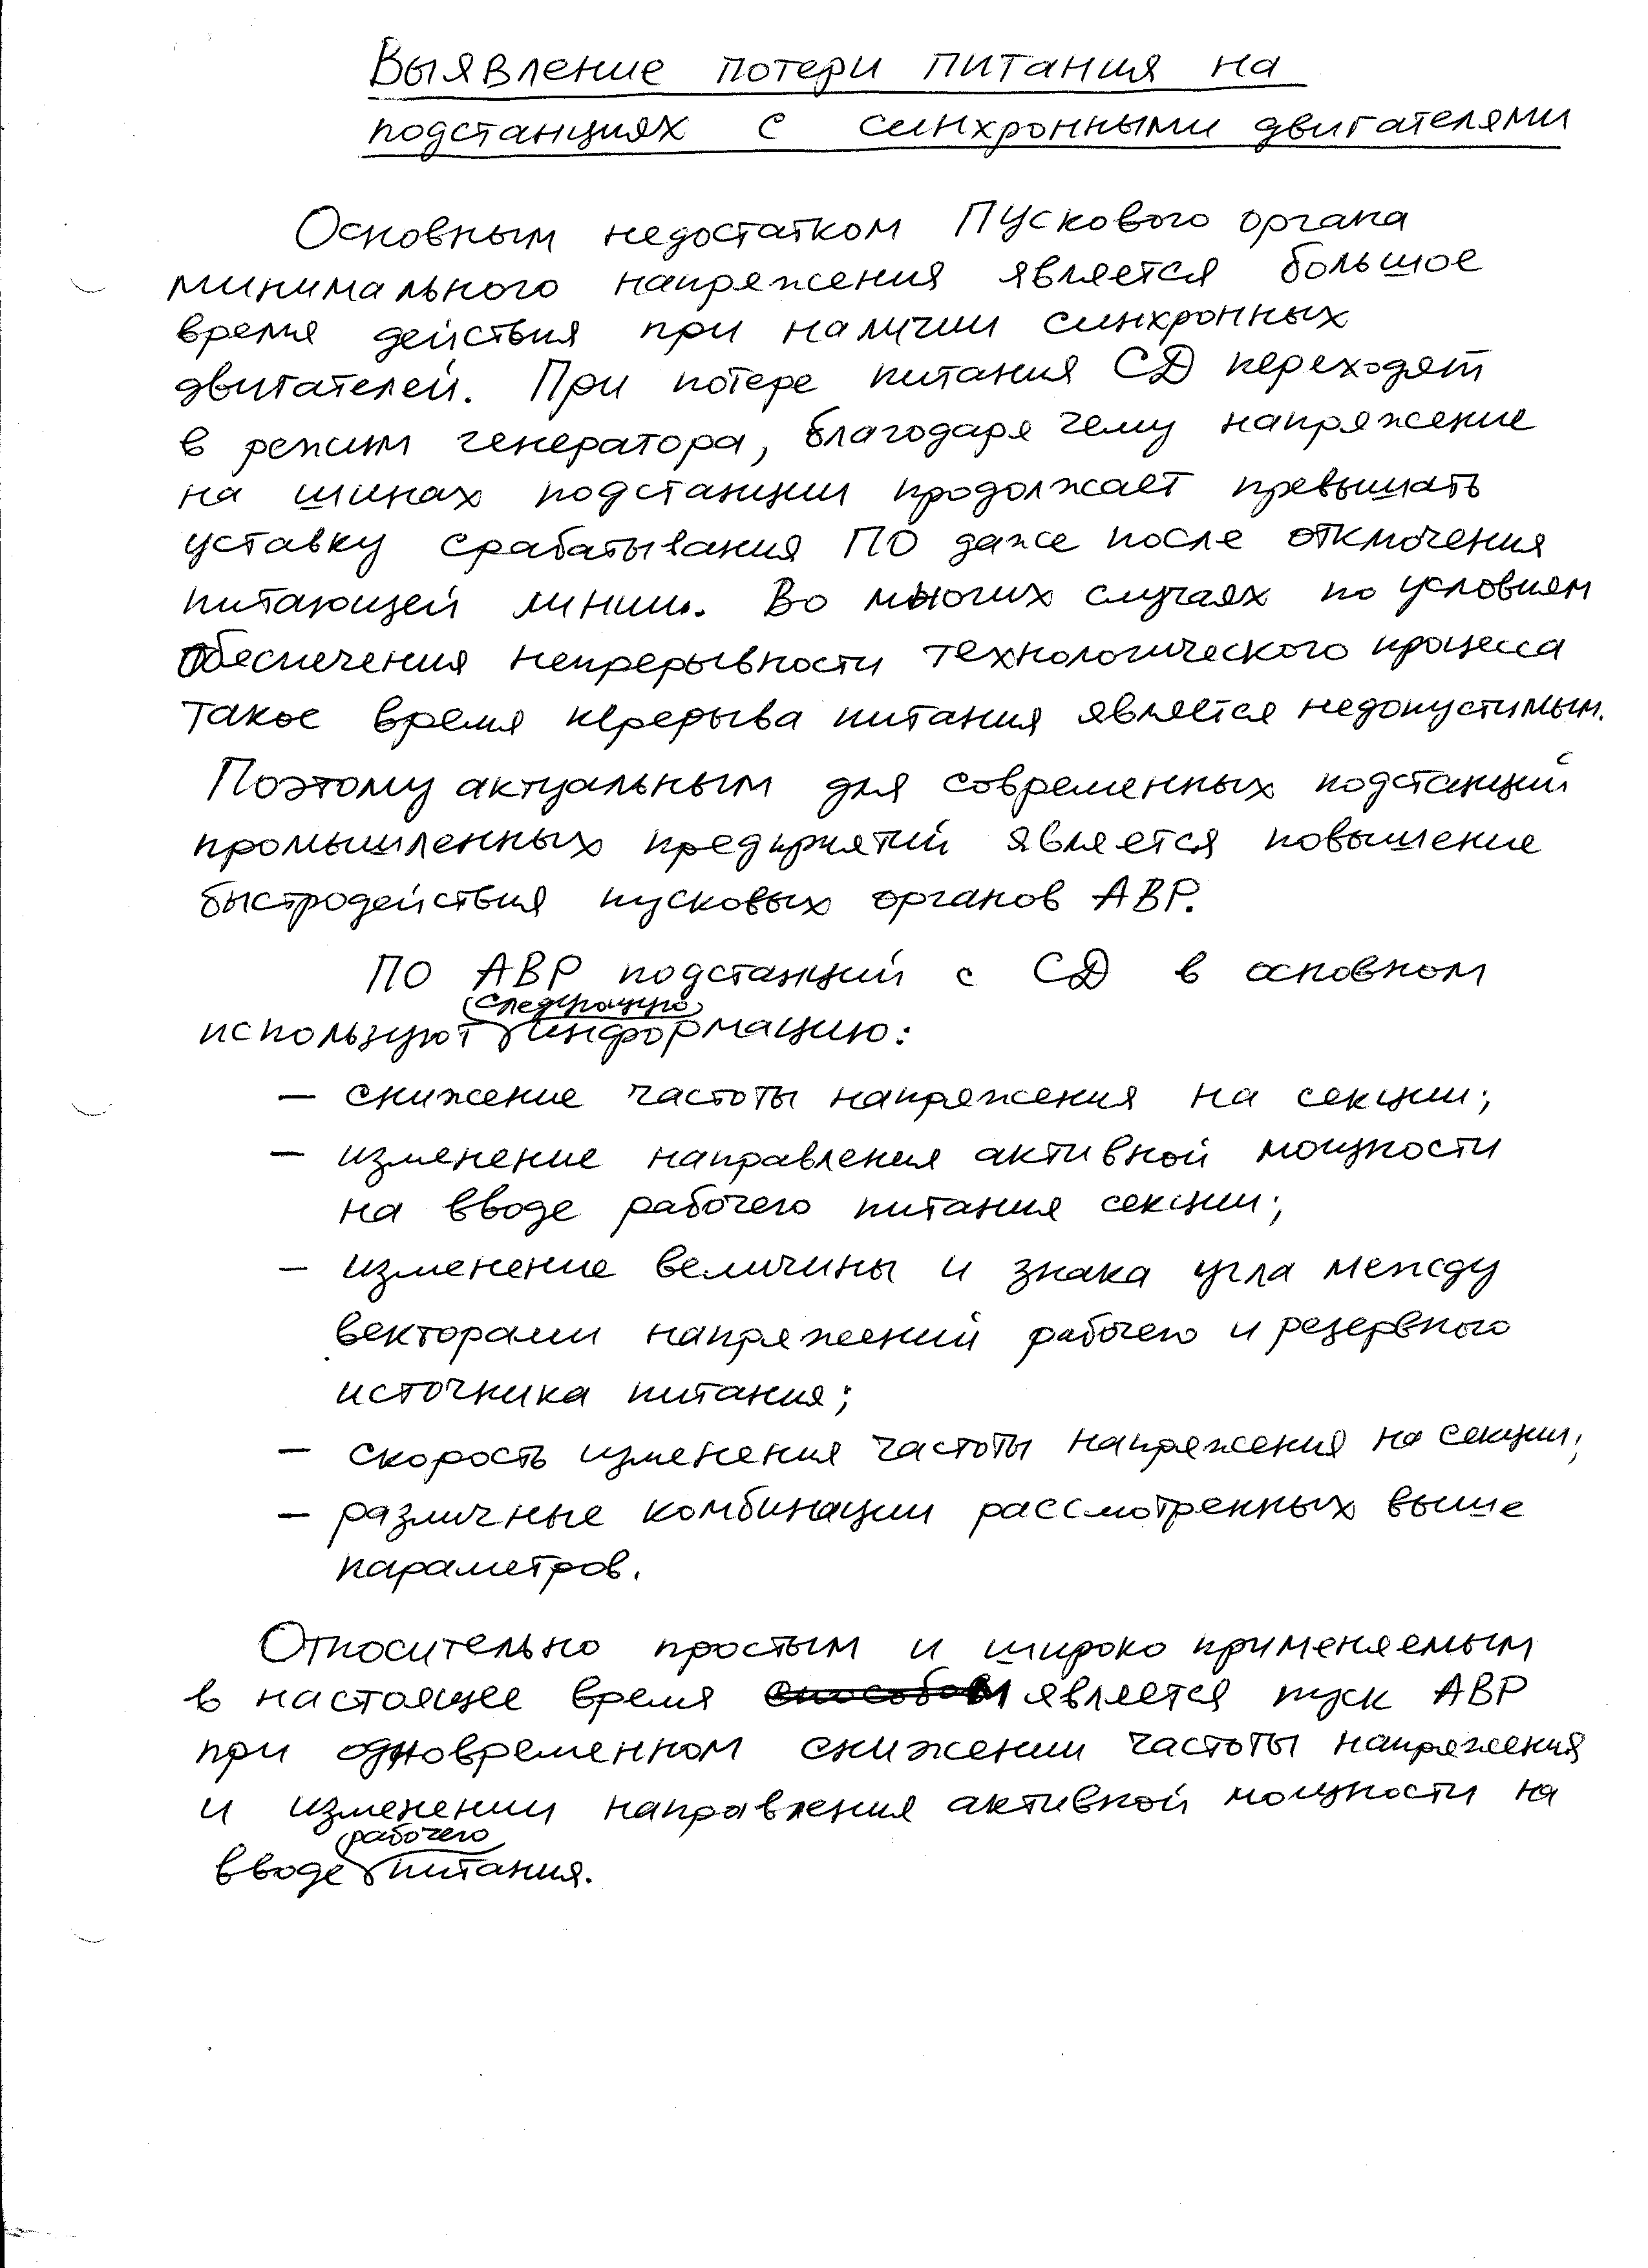 Выявление потери питания на
подстанциях с синхронными двигателями
Основным недостатком Пускового органа
минимального напряжения является большое
время действия при наличии синхронных
двигателей. При потере питания СД переходят
в режим генератора, благодаря чему напряжение
на шинах подстанции продолжает превышать
уставку срабатывания ПО даже после отключения
питающей линии. Во многих случаях по условиям
обеспечения непрерывности технологического процесса
такое время перерыва питания является недопустимым.
Поэтому актуальным для современных подстанций
промышленных предприятий является повышение
быстродействия пусковых органов АВР.
ПО АВР подстанций с СД в основном
используют следующую информацию:
– снижение частоты напряжения на секции;
– изменение направления активной мощности
на вводе рабочего питания секции;
– изменение величины и знака угла между
векторами напряжений рабочего и резервного
источника питания;
– скорость изменения частоты напряжения на секции;
– различные комбинации рассмотренных выше
параметров.
Относительно простым и широко применяемым
в настоящее время способом является пуск АВР
при одновременном снижении частоты напряжения
и изменении направления активной мощности на
вводе рабочего питания.